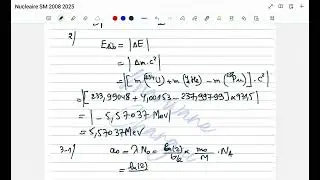 Nucleaire SM 2008 2025
2)
E_Lib = |ΔE|
= |Δm.c²|
= |[m(²³⁴U) + m(⁴He) - m(²³⁸Pu)].c²|
= |[233,99048 + 4,00153 - 237,99799] × 931,5|
= |- 5,57037 MeV|
= 5,57037 MeV
3-1) a₀ = λ N₀ = ln(2)/t₁/₂ × m₀/M . N_A
= ln(2)